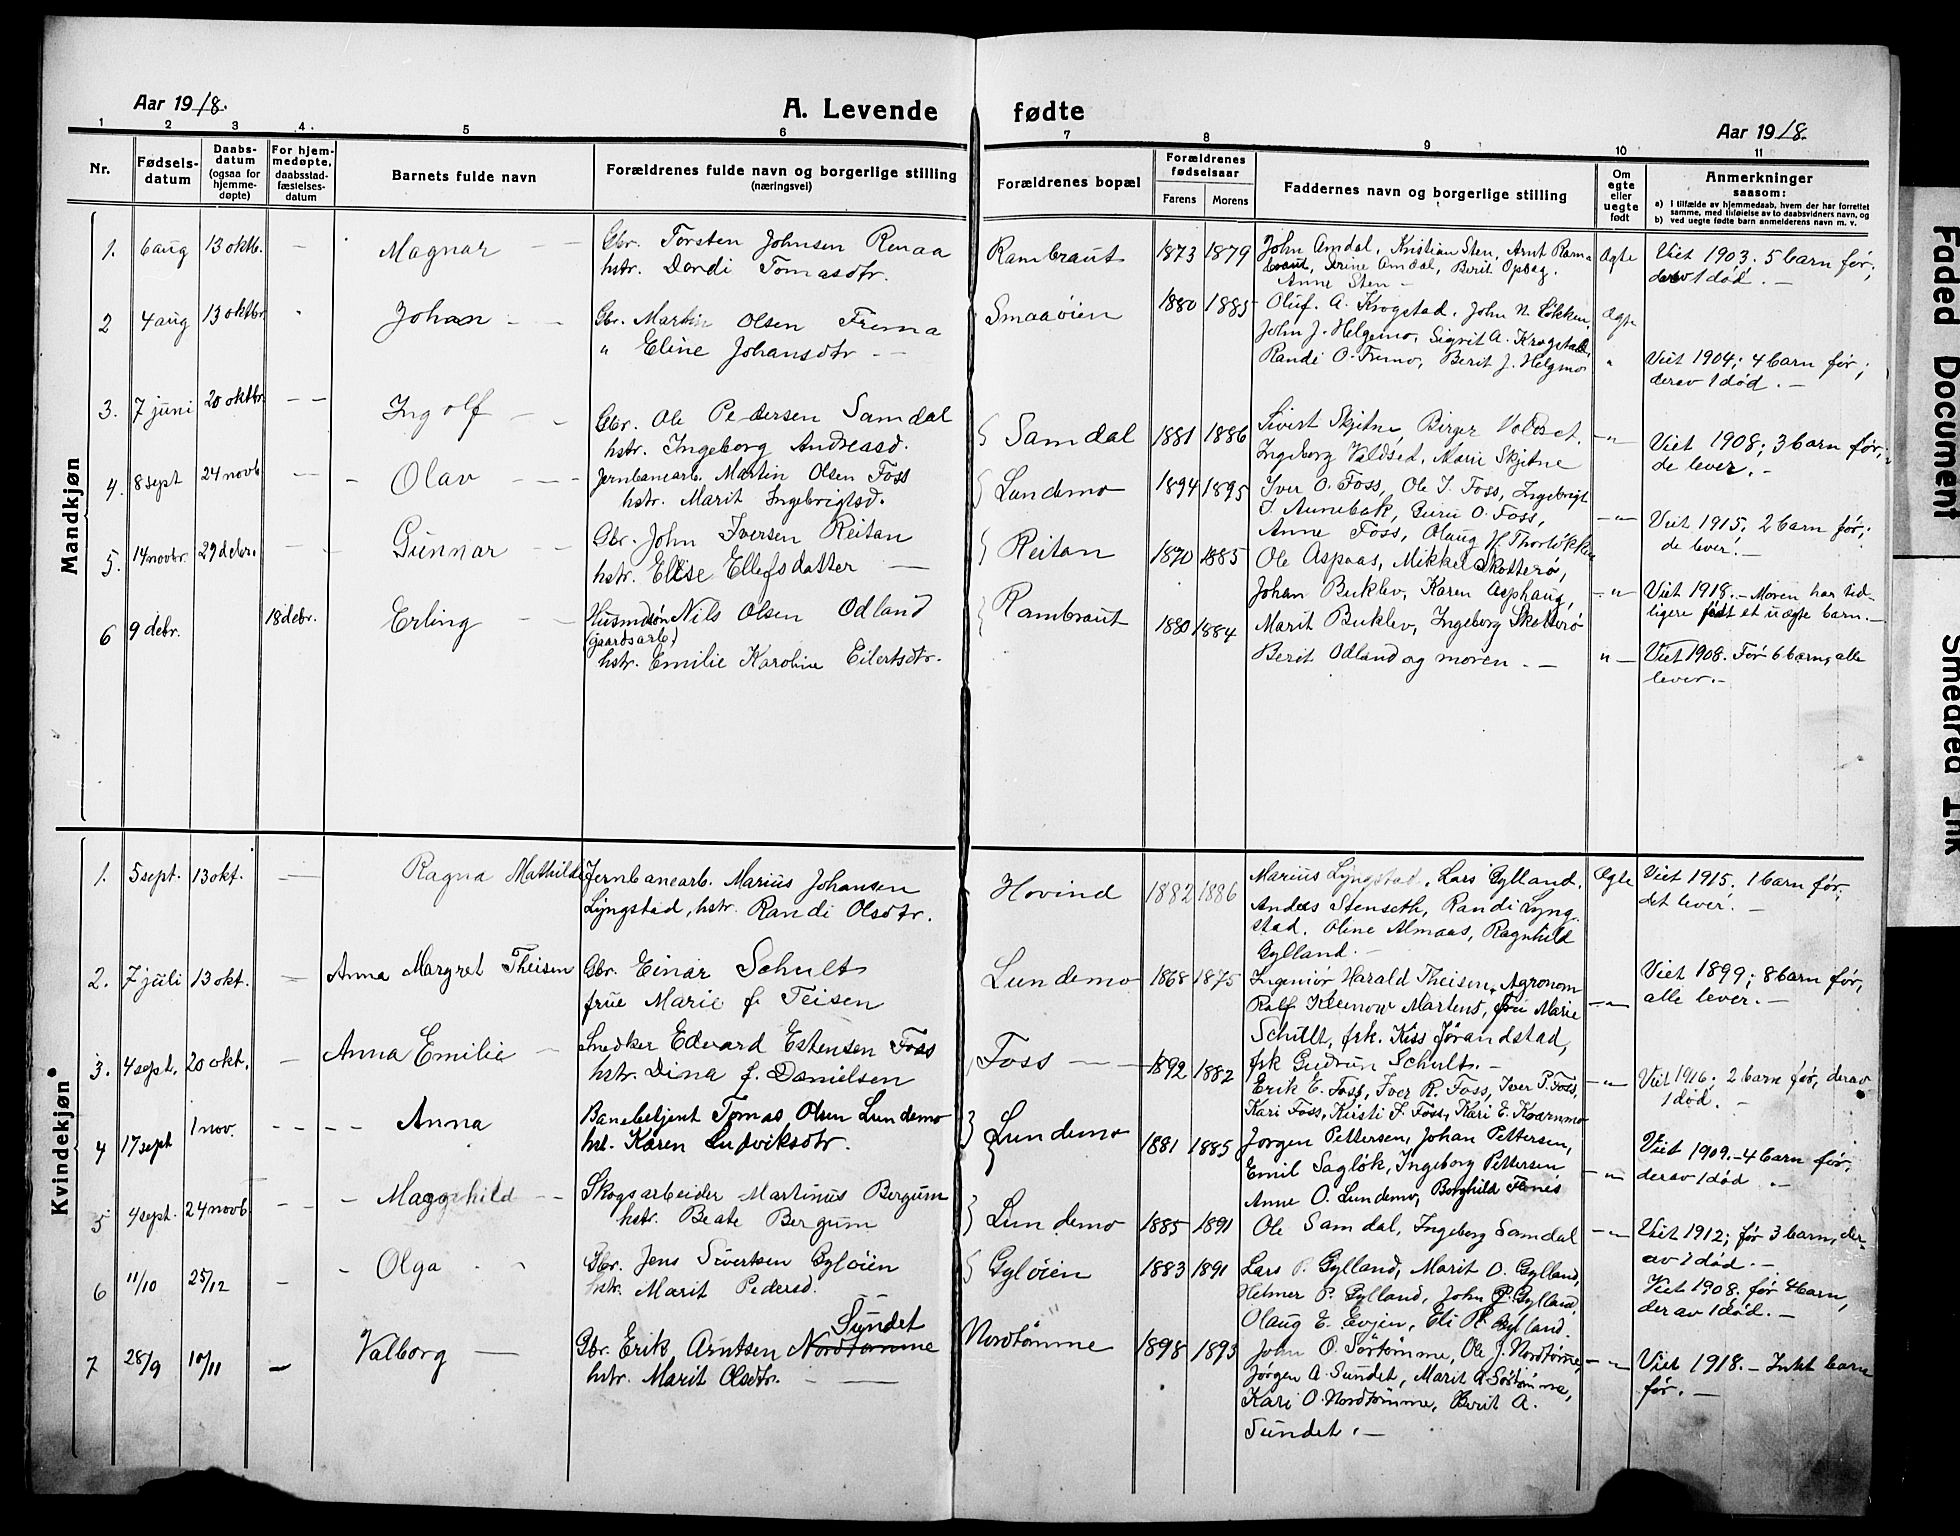 Aar 1918.
A. Levende fødte
Aar 1918.
1 2 3 4 5 6 7 8 9 10 11
Nr.
Fødselsdatum
Daabsdatum (ogsaa for hjemmedøpte)
For hjemmedøpte, daabsstadfæstelsesdatum
Barnets fulde navn
Forældrenes fulde navn og borgerlige stilling (næringsvei)
Forældrenes bopæl
Forældrenes fødselsaar
Farens Morens
Faddernes navn og borgerlige stilling
Om egte eller uegte født
Anmerkninger saasom:
a) i tilfælde av hjemmedaab, hvem der har forrettet samme, med tilføielse av to daabsvidners navn, og
b) ved uegte fødte barn anmelderens navn m. v.
Mandkjøn
1. 6 aug 13 oktb. – Magnar – – Gbr. Torsten Johnsen Renaa
hstr. Dordi Tomasdtr.
Rambraut 1873 1879 John Amdal, Kristian Sten, Arnt Ram
braut, Trine Amdal, Berit Opdag.
Anne Sten –
Ægte Viet 1903. 5 barn før;
derav 1 død. –
2 4 aug 13 oktbr. Johan – – Gbr. Martin Olsen Fremo
" Eline Johansdtr. –
Smaaøien 1880 1885 Oluf. A. Krogstad, John N. Løkken,
John J. Helgemo, Sigrit A. Krogstad,
Randi O. Fremo, Berit J. Helgmo
Ægte " Viet 1904; 4 barn før;
derav 1 død. –
3. 7 juni 20 oktbr. – – Ingolf – Gbr. Ole Pedersen Samdal
hstr. Ingeborg Andreasd.
Samdal 1881 1886 Sivert Skjetne, Birger Voldset,
Ingeborg Valdset, Marie Skjetne
– " – Viet 1908; 3 barn før,
de lever. –
4. 8 sept 24 novb. – – Olav – – Jernbanearb. Martin Olsen Foss
hstr. Marit Ingebrigtsd.
Lundemo 1894 1895 Iver O. Foss, Ole I. Foss, Ingebrigt
I. Aunebak, Guru O. Foss,
Anne Foss, Olaug H. Thorløkken
– " – Viet 1915; 2 barn før;
de lever. –
5. 14 novbr. 29 debr. – – Gunnar – – Gbr. John Iversen Reitan
hstr. Elise Ellefsdatter –
Reitan 1870 1885 Ole Aspaas, Mikkel Skotterø,
Johan Buklev, Karen Asphaug,
Marit Buklev, Ingeborg Skotterø
– " – Viet 1918. – Moren har tid-
ligere født et uægte barn. –
6 9 debr. 18 debr. Erling – – Husmdsøn Nils Olsen Odland
(gaardsarb)
hstr. Emilie Karoline Eilertsdtr.
Rambraut 1880 1884
Berit Odland og moren – –
" – Viet 1908. Før 6 barn, alle
lever. –
Kvindekjøn
1. 5 sept. 13 okt. – Ragna Mathilde Jernbanearb. Marius Johansen
Lyngstad, hstr. Randi Olsdtr.
Hovind 1882 1886 Marius Lyngstad, Lars Gylland,
Anders Stenseth, Randi Lyng-
stad, Oline Almaas, Ragnhild
Gylland. –
Ægte Viet 1915. 1 barn før,
det lever. –
2. 7 juli 13 okt. – Anna Margret Theisen Gbr. Einar Schult
frue Marie f. Teisen
Lundemo 1868 1875 Ingeniør Harald Theisen, Agronom
Ralf Kleinow Martens, fru Marie
Schult, frk. Kiss Jørandstad,
frk Gudrun Schult. –
– " – Viet 1899; 8 barn før,
alle lever. –
3. 4 sept. 20 okt. – Anna Emilie – Snedker Edvard Estensen Foss
hstr. Dina f. Danielsen
Foss – – 1892 1882
Erik E. Foss, Iver R. Foss, Iver P. Foss,
Kari Foss, Kirsti I. Foss, Kari E. Kvernmo
– " – Viet 1916; 2 barn før, derav
1 død. –
4 17 sept 1 nov. – – – – Anna Banebetjent Tomas Olsen Lundemo
hst. Karen Ludviksdtr.
Lundemo 1881 1885 Jørgen Pettersen, Johan Pettersen,
Emil Sagløk, Ingeborg Pettersen
Anne O. Lundemo, Borghild Fanes
– " – Viet 1909. – 4 barn før,
derav 1 død . –
5 4 sept. 24 novb. – – – Magnhild – – Skogsarbeider Martinus Bergum
hstr. Beate Bergum
Lundemo 1885 1891 Ole Samdal, Ingeborg Samdal
– " – Viet 1912; før 3 barn, der-
av 1 død. –
6 11/10 25/12 – – Olga Gbr. Jens Sivertsen Gyløien
hstr. Marit Pedersd.
Gyløien 1883 1891 Lars P. Gylland, Marit O. Gylland,
Helmer P. Gylland, John P. Gylland,
Olaug E. Evjen, Eli H. Gylland.
Viet 1908. før 4 barn,
derav 1 død. –
7 28/9 10/11 – Valborg – Sundet
Gbr. Erik Arntsen Nordtømme
hstr. Marit Olsdtr. – –
Nordtømme 1898 1893 John O. Sørtømme, Ole J. Nordtømme,
Jørgen A. Sundet, Marit A. Sørtømme,
Kari O. Nordtømme, Berit A.
Sundet. –
– " – Viet 1918. – Intet barn
før. –
Faded Document
Smeared Ink